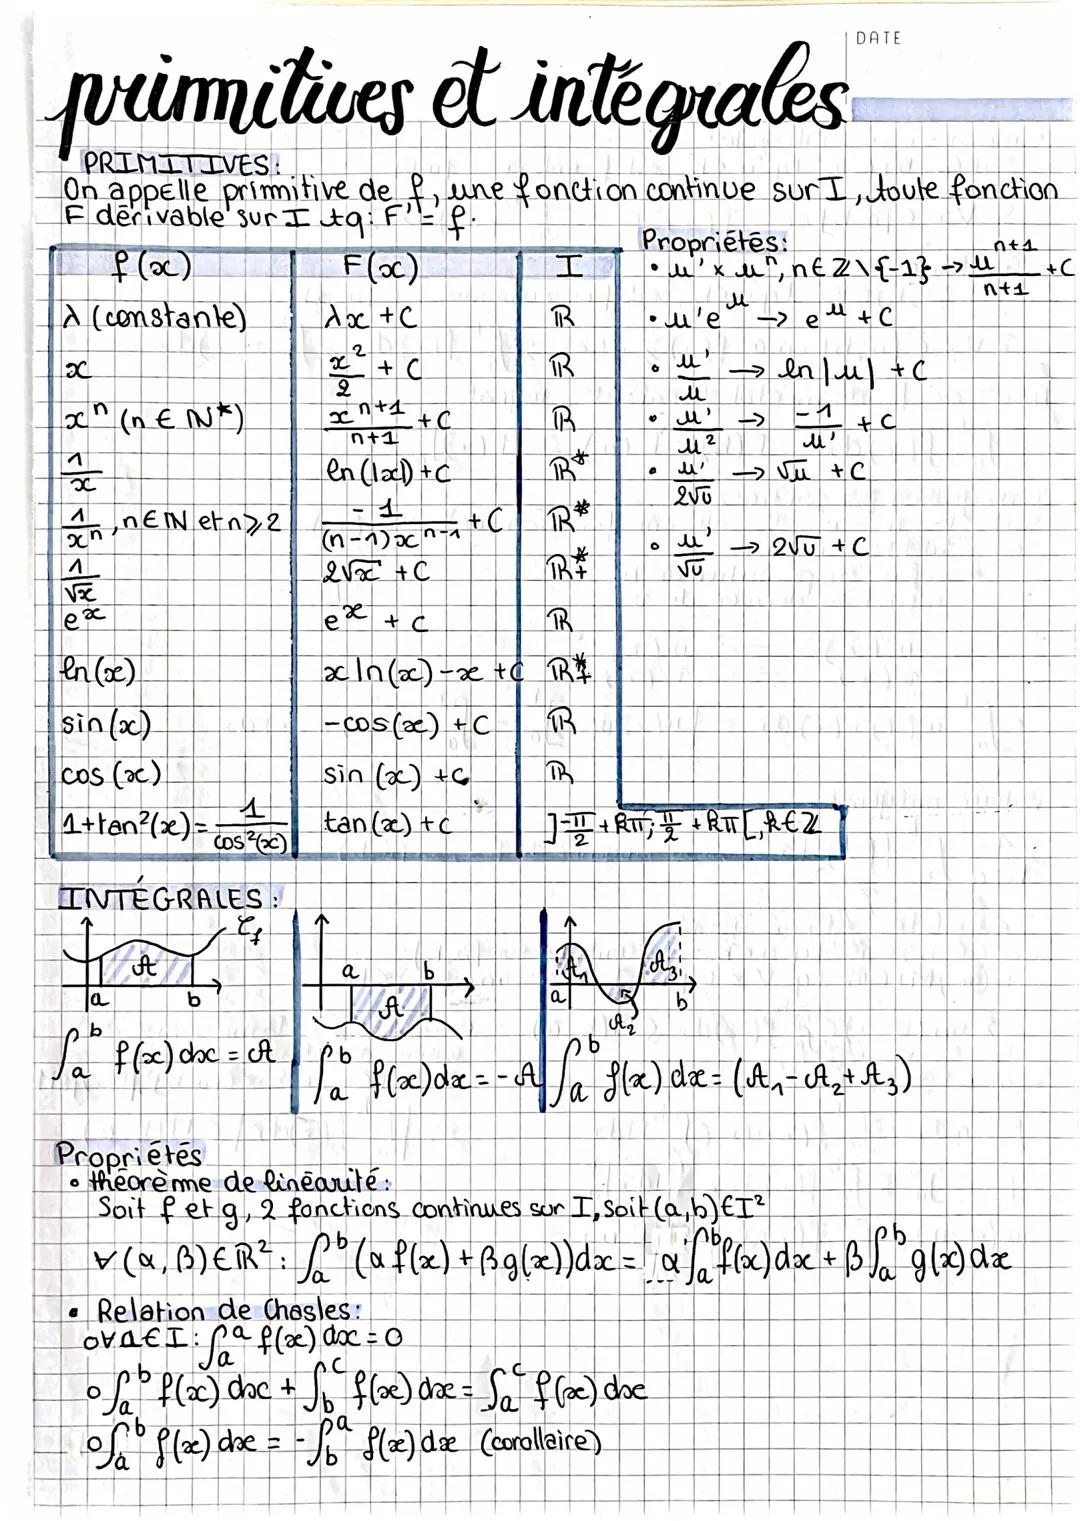 DATE
primitives et intégrales
PRIMITIVES:
On appelle primitive de f, une fonction continue sur I, toute fonction
F dérivable sur I tq: F' = f.
f(x) F(x) I
λ (constante) λx + C ℝ
x x²/2 + C ℝ
xⁿ (n ∈ ℕ*) xⁿ⁺¹/(n+1) + C ℝ
1/x ln(|x|) + C ℝ*
1/xⁿ, n∈ℕ et n⩾2 -1/((n-1)xⁿ⁻¹) + C ℝ*
1/√x 2√x + C ℝ*₊
eˣ eˣ + C ℝ
ln(x) x ln(x) - x + C ℝ*₊
sin(x) -cos(x) + C ℝ
cos(x) sin(x) + C ℝ
1+tan²(x) = 1/cos²(x) tan(x) + C ]-π/2 + kπ; π/2 + kπ[, k∈ℤ
Propriétés:
• u' × uⁿ, n∈ℤ\{-1} → uⁿ⁺¹/(n+1) + C
• u'eᵘ → eᵘ + C
• u'/u → ln|u| + C
• u'/u² → -1/u' + C
• u'/2√u → √u + C
• u'/√u → 2√u + C
INTÉGRALES:
𝒞f
A
a b
∫ₐᵇ f(x) dx = A
a b
A
∫ₐᵇ f(x) dx = -A
A₁ A₃
a b
A₂
∫ₐᵇ f(x) dx = (A₁ - A₂ + A₃)
Propriétés
• théorème de linéarité:
Soit f et g, 2 fonctions continues sur I, soit (a,b)∈I²
∀(α, β)∈ℝ²: ∫ₐᵇ (αf(x) + βg(x))dx = α∫ₐᵇ f(x) dx + β∫ₐᵇ g(x) dx
• Relation de Chasles:
o∀a∈I: ∫ₐᵃ f(x) dx = 0
o∫ₐᵇ f(x) dx + ∫_b^c f(x) dx = ∫ₐᶜ f(x) dx
o∫ₐᵇ f(x) dx = -∫_b^a f(x) dx (corollaire)